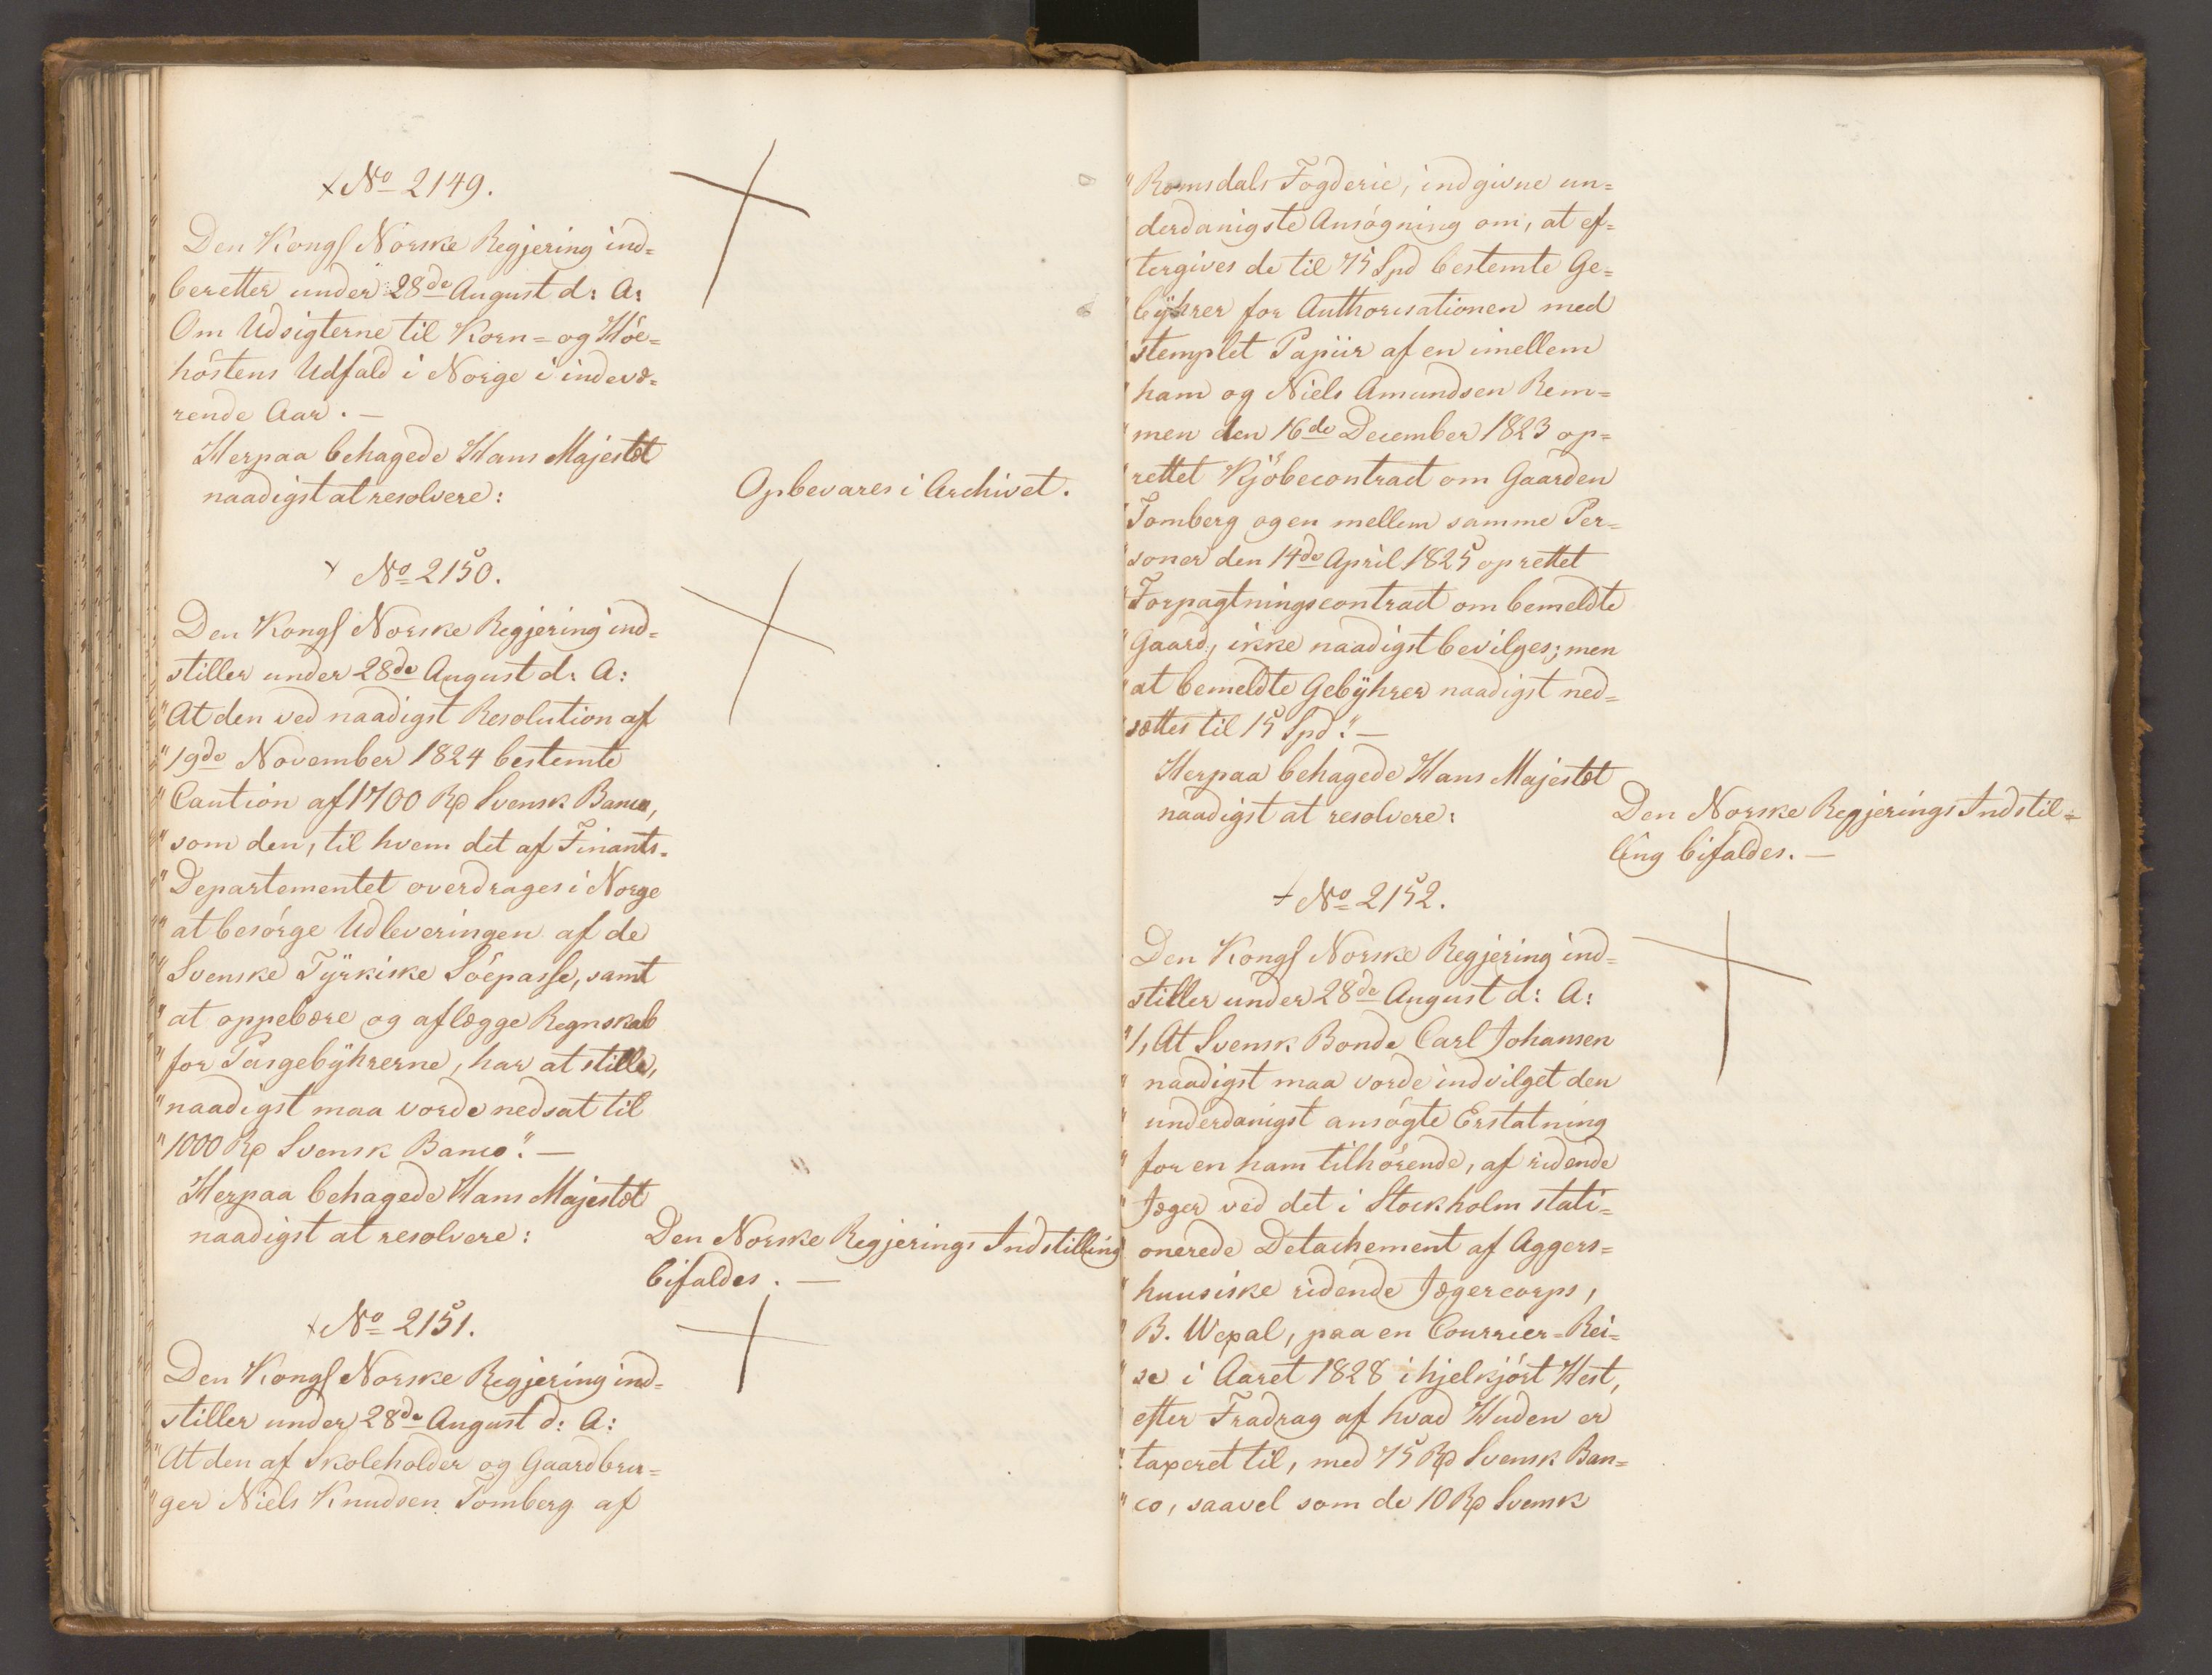 No 2149.
Den Kongl Norske Regjering ind=
beretter under 28de August d: A:
Om Udsigterne til Korn= og Höe=
höstens Udfald i Norge i indevæ=
rende Aar. —
Herpaa behagede Hans Majestæt
naadigst at resolvere:
Opbevares i Archivet.
No 2150.
Den Kongl Norske Regjering ind=
stiller under 28de August d: A:
"At den ved naadigst Resolution af
"19de November 1824 bestemte
"Caution af 1700 Rd Svensk Banco,
"som den, til hvem det af Finants-
"Departementet overdrages i Norge
"at besörge Udleveringen af de
"Svenske Tyrkiske Söepasse, samt
"at oppebære og aflægge Regnskab
"for Pasgebyhrerne, har at stille,
"naadigst maa vorde nedsat til
"1000 Rd Svensk Banco". —
Herpaa behagede Hans Majestæt
naadigst at resolvere:
Den Norske Regjerings Indstilling
bifaldes. —
No 2151.
Den Kongl Norske Regjering ind=
stiller under 28de August d: A:
"At den af Skoleholder og Gaardbru=
"ger Niels Knudsen Tomberg af
"Romsdals Fogderie, indgivne un=
derdanigste Ansögning om, at ef=
tergives de til 75 Spd bestemte Ge=
byhrer for Authorisationen med
stemplet Papiir af en imellem
ham og Niels Amundsen Rem=
men den 16de December 1823 op=
rettet Kjöbecontract om Gaarden
Tomberg og en mellem samme Per=
soner den 14de April 1825 oprettet
Forpagtningscontract om bemeldte
Gaard, ikke naadigst bevilges; men
at bemeldte Gebyhrer naadigst ned=
sættes til 15 Spd". —
Herpaa behagede Hans Majestæt
naadigst at resolvere:
Den Norske Regjerings Indstil=
ling bifaldes. —
No 2152.
Den Kongl Norske Regjering ind=
stiller under 28de August d: A:
"1, At Svensk Bonde Carl Johansen
" naadigst maa vorde indvilget den
" underdanigst ansögte Erstatning
" for en ham tilhörende, af ridende
" Jæger ved det i Stockholm stati=
" onerede Detachement af Aggers=
" huusiske ridende Jægercorps,
" B. Wexal, paa en Courrier=Rei=
" se i Aaret 1828 ihjelkjört Hest,
" efter Fradrag af hvad Huden er
" taxeret til, med 75 Rd Svensk Ban=
" co, saavel som de 10 Rd Svensk